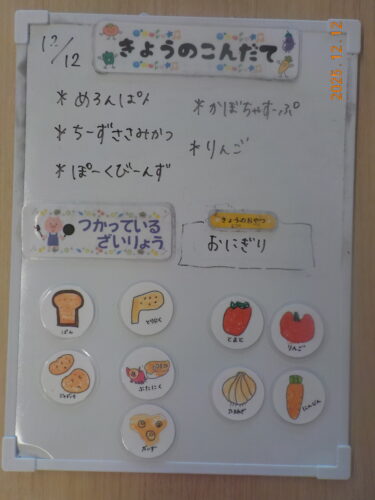 きょうのこんだて
12/12
*めろんぱん
*ちーずささみかつ
*ぽーくびーんず
*かぼちゃすーぷ
*りんご
つかっている
ざいりょう
きょうのおやつ
おにぎり
ぱん
とりにく
とまと
りんご
じゃがいも
ぶたにく
たまねぎ
にんじん
だいず